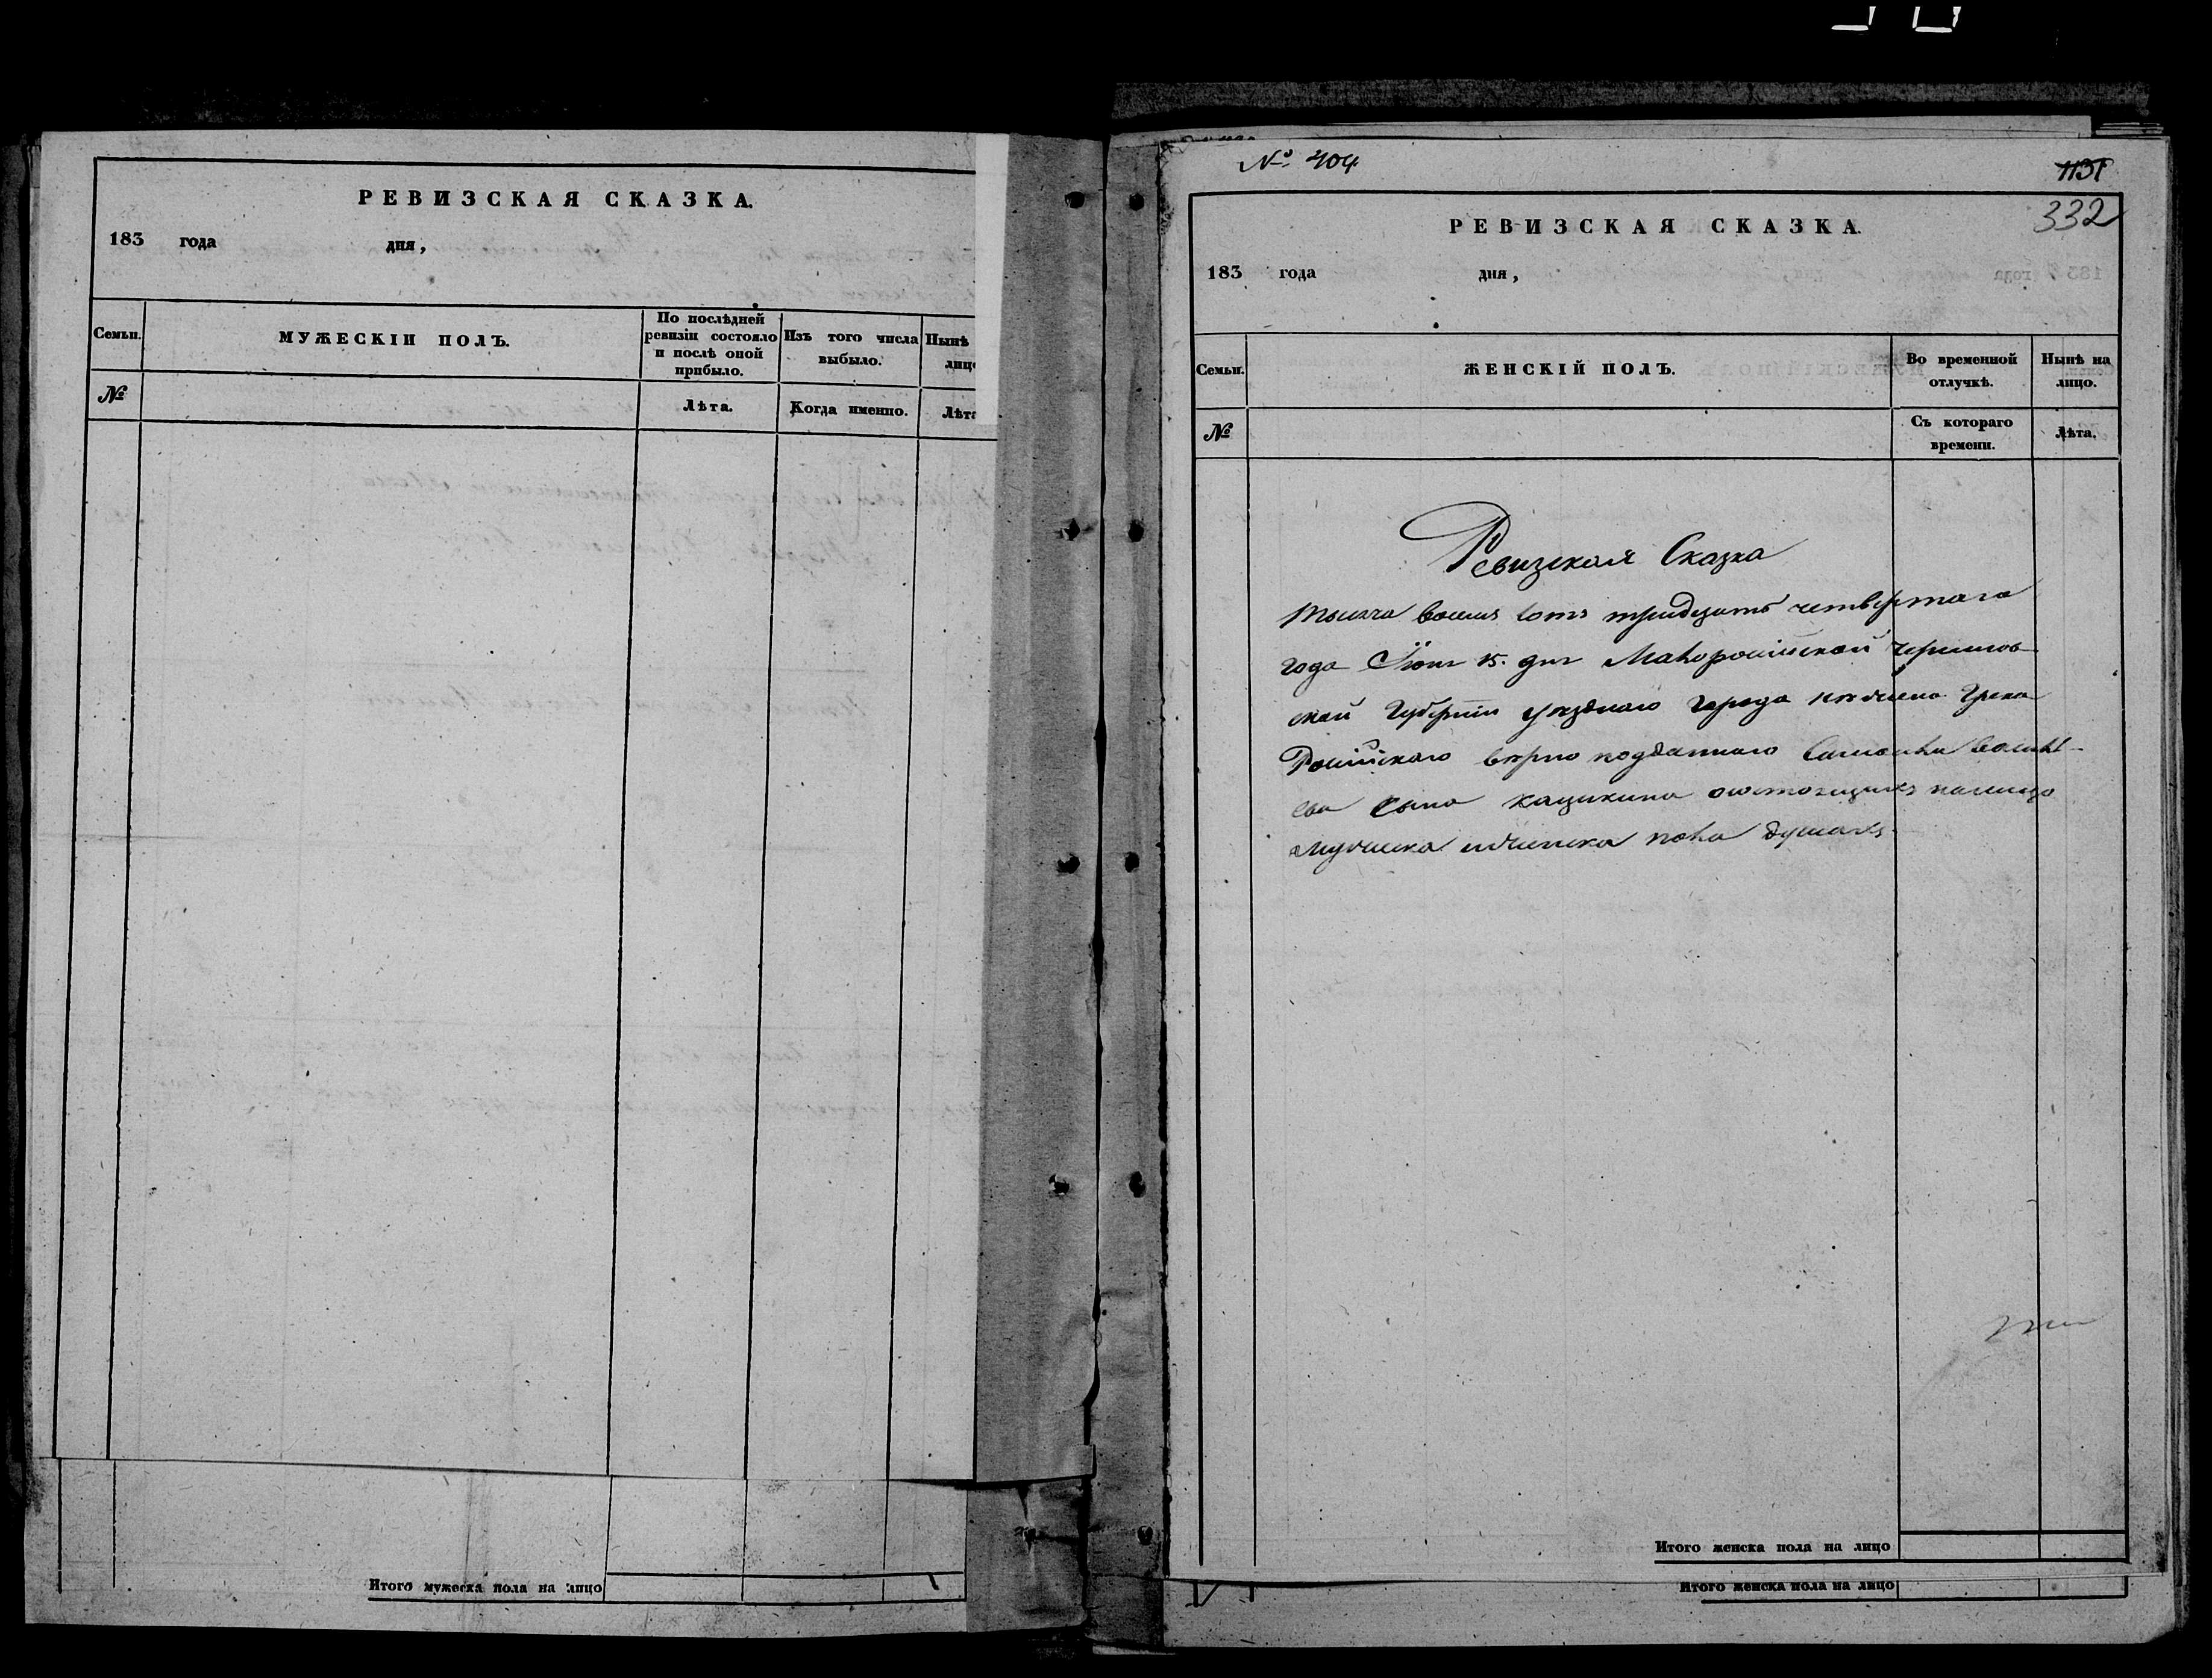 РЕВИЗСКАЯ СКАЗКА.
183 года дня,
Семьи.
МУЖЕСКІЙ ПОЛЪ.
По послѣдней
ревизіи состояло
и послѣ оной
прибыло.
Изъ того числа
выбыло.
Нынѣ
лицо
№
Лѣта.
Когда именно.
Лѣта
Итого мужеска пола на лицо
№ 404
1131
332
РЕВИЗСКАЯ СКАЗКА.
183 года дня,
Семьи.
ЖЕНСКІЙ ПОЛЪ.
Во временной
отлучкѣ.
Нынѣ на
лицо.
№
Съ котораго
времени.
Лѣта.
Ревизская Сказка
тысяча восемь сотъ тридцать четвертаго
года Іюня 15. дня Малороссійской Чернигов-
ской Губерніи уѣзднаго города Нѣжина Грека
Россійскаго вѣрно подданнаго Василь-
ева сына Кацикина о состоящихъ налицо
мужеска и женска пола душахъ
Итого женска пола на лицо
Итого женска пола на лицо